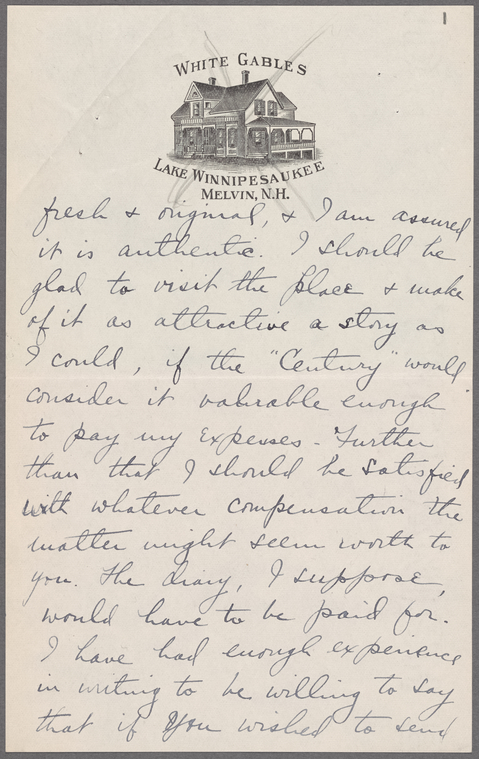 1
WHITE GABLES
LAKE WINNIPESAUKEE
MELVIN, N.H.
fresh & original, & I am assured
it is authentic. I should be
glad to visit the place & make
of it as attractive a story as
I could, if the "Century" would
consider it valuable enough
to pay my expenses - Further
than that I should be satisfied
with whatever compensation the
matter might seem worth to
you. The diary, I suppose,
would have to be paid for.
I have had enough experience
in writing to be willing to say
that if you wished to send